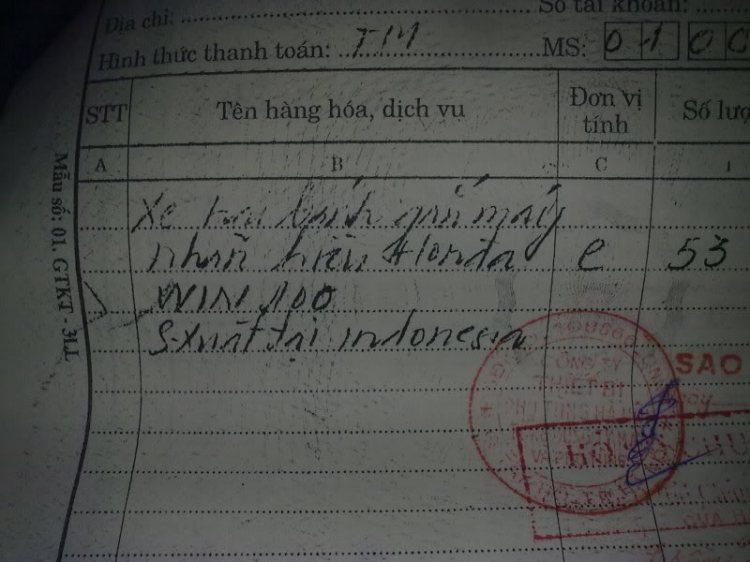 Địa chỉ:
Số tài khoản:
Hình thức thanh toán: TM MS: 0 1 0 0
STT Tên hàng hóa, dịch vụ Đơn vị tính Số lượ
A B C 1
Mẫu số: 01. GTKT - 3LL
Xe hai bánh gắn máy
nhãn hiệu Honda C 53
WIN 100
S.xuất tại indonesia
CÔNG TY
THIẾT BỊ
PHỤ TÙNG
SAO